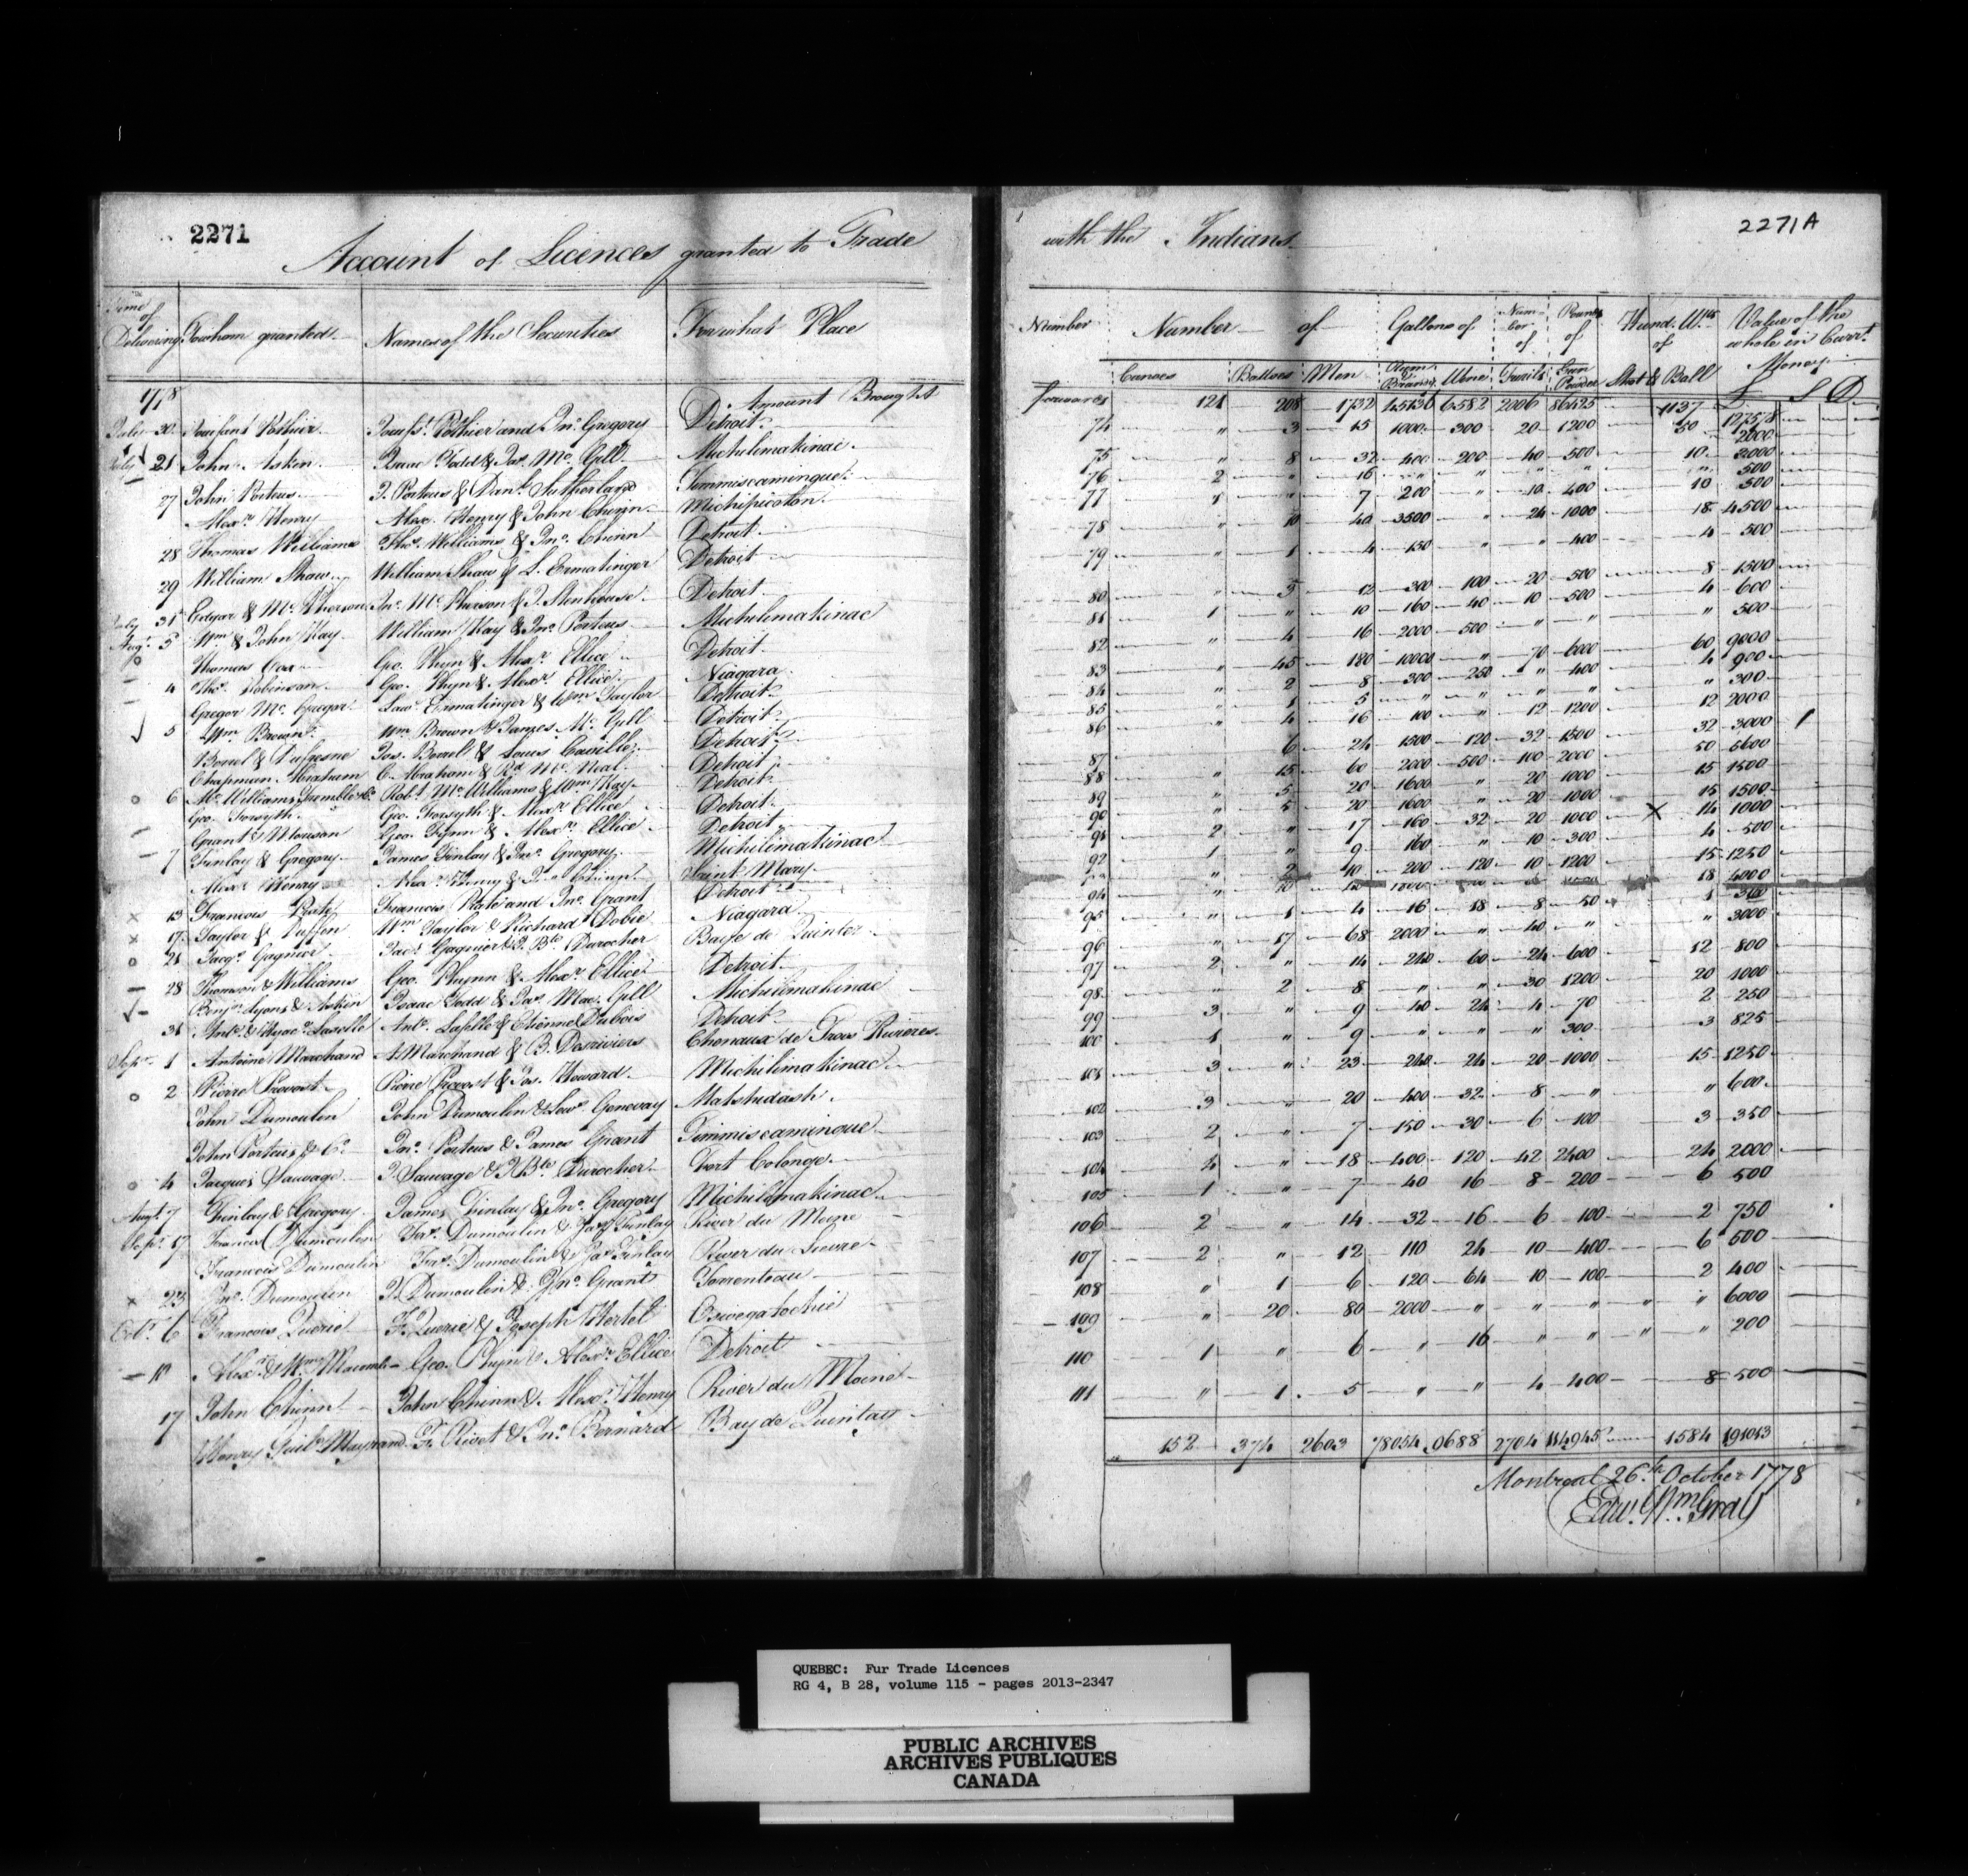 2271
Account of Licences granted to Trade
Time of Delivering
To whom granted
Names of the Securities
For what Place
1778
Amount Brought
July 20 Toussaint Pothier Touss.t Pothier and Jn.o Gregory Detroit
July 21 John Askin Isaac Todd & Ja.s Mc. Gill Michilimakinac
27 John Porteus J. Porteus & Dan.l Sutherland Timmiscamingue
Alex.r Henry Alex. Henry & John Chinn Michipicoton
28 Thomas Williams Tho.s Williams & Jn.o Chinn Detroit
29 William Shaw William Shaw & L. Ermatinger Detroit
July 31 Edgar & Mc. Pherson Jn.o Mc. Pherson & J. Stenhouse Detroit
Aug.t 3 W.m & John Kay William Kay & Jn.o Porteus Michilimakinac
Thomas Cox Geo. Phyn & Alex.r Ellice Detroit
4 Tho.s Robinson Geo. Phyn & Alex.r Ellice Niagara
Gregor Mc. Gregor Law.e Ermatinger & W.m Taylor Detroit
5 W.m Brown W.m Brown & James Mc. Gill Detroit
Borrel & Dufresne Jos. Borrel & Louis Cavillé Detroit
Chapman Abraham C. Abraham & R.d Mc. Neal Detroit
6 Mc. Williams Tremble & Co. Rob.t Mc. Williams & W.m Kay Detroit
Geo. Forsyth Geo. Forsyth & Alex.r Ellice Detroit
Grant & Morison Geo. Phyn & Alex.r Ellice Detroit
7 Finlay & Gregory James Finlay & Jn.o Gregory Michilimakinac
Alex.r Henry Alex.r Henry & Jn.o Chinn Saint Mary
13 Francois Francois and Jn.o Grant Detroit
17 Taylor & Duffin W.m Taylor & Richard Dobie Niagara
21 Jacq.s Gagnier Jac.s Gagnier & J. B.te Durocher Baye de Quinter
28 Thomson & Williams Geo. Phynn & Alex.r Ellice Detroit
Benj.n Lyons & Askin Isaac Todd & Ja.s Mac. Gill Michilimakinac
31 Ant.o & Hyac.e Laselle Ant.o Laselle & Etienne Dubois Detroit
Sep.r 1 Antoine Marchand A. Marchand & B. Desriviers Chenaux de Trois Rivieres
2 Pierre Provost Pierre Provost & Jos. Howard Michilimakinac
John Dumoulin John Dumoulin & Lew.s Genevay Matshidash
John Porteus & Co. Jn.o Porteus & James Grant Timmiscamingue
4 Jacques Sauvage J. Sauvage & J. B.te Durocher Fort Colonge
Aug.t 7 Finlay & Gregory James Finlay & Jn.o Gregory Michilimakinac
Sep.r 17 Francis Dumoulin Fra.s Dumoulin & Ja.s Finlay River du Moine
Francois Dumoulin Fra.s Dumoulin & Ja.s Finlay River du Lievre
23 Jn.o Dumoulin J. Dumoulin & Jn.o Grant Torrenteau
Oct.r 6 Francois Querie F. Querie & Joseph Hertel Oswegatochie
10 Alex.r & W.m Macomb Geo. Phyn & Alex.r Ellice Detroit
17 John Chinn John Chinn & Alex.r Henry River du Moine
Henry Guil.e Mayrand F. Rivet & Jn.o Bernard Bay de Quintay
2271A
with the Indians
Number
Number of
Gallons of
Number of
Pounds of
Hund. W.ts of
Value of the whole in Curr.t Money
Canoes Batteos Men Rum & Brandy Wine Fuzils Gun Powder Shot & Ball £ S D
forward 121 208 1732 45136 6582 2006 86425 1137 127578
74 " 3 15 1000 300 20 1200 50 2000
75 " 8 32 400 200 40 500 10 2000
76 2 " 16 " " " " " 500
77 1 " 7 200 " 10 400 10 500
78 " 10 40 3500 " 24 1000 18 4500
79 " 1 4 150 " " 400 4 500
80 " 3 12 300 100 20 500 8 1500
81 1 " 10 160 40 10 500 4 600
82 " 4 16 2000 500 " " " 500
83 " 45 180 10000 " 70 6000 60 9000
84 " 2 8 300 250 " 400 4 900
85 " 1 5 " " " " " 300
86 " 4 16 100 " 12 1200 12 2000
87 6 24 1500 120 32 1500 32 3000
88 " 15 60 2000 500 100 2000 50 5600
89 " 5 20 1600 " 20 1000 15 1500
90 " 5 20 1600 " 20 1000 15 1500
91 2 " 17 160 32 20 1000 14 1000
92 1 " 9 160 " 10 300 4 500
" 2 10 200 120 10 1200 15 1250
94 " 10 18 4000
95 " 1 4 16 18 8 50 1 300
96 " 17 68 2000 " 40 " " 3000
97 2 " 14 240 60 24 600 12 800
98 " 2 8 " " 30 1200 20 1000
99 3 " 9 40 24 4 70 2 250
100 1 " 9 " " " 300 3 825
101 3 " 23 240 24 20 1000 15 1250
102 3 " 20 400 32 8 " " 600
103 2 " 7 150 30 6 100 3 350
104 4 " 18 400 120 42 2400 24 2000
105 1 " 7 40 16 8 200 6 500
106 2 " 14 32 16 6 100 2 750
107 2 " 12 110 24 10 400 6 500
108 " 1 6 120 64 10 100 2 400
109 " 20 80 2000 " " " " 6000
110 1 " 6 " 16 " " " 200
111 " 1 5 " " 4 400 8 500
152 374 2603 78054 9688 2704 114945 1584 191013
Montreal 26.th October 1778
Edw. Wm Gray
QUEBEC: Fur Trade Licences
RG 4, B 28, volume 115 - pages 2013-2347
PUBLIC ARCHIVES
ARCHIVES PUBLIQUES
CANADA